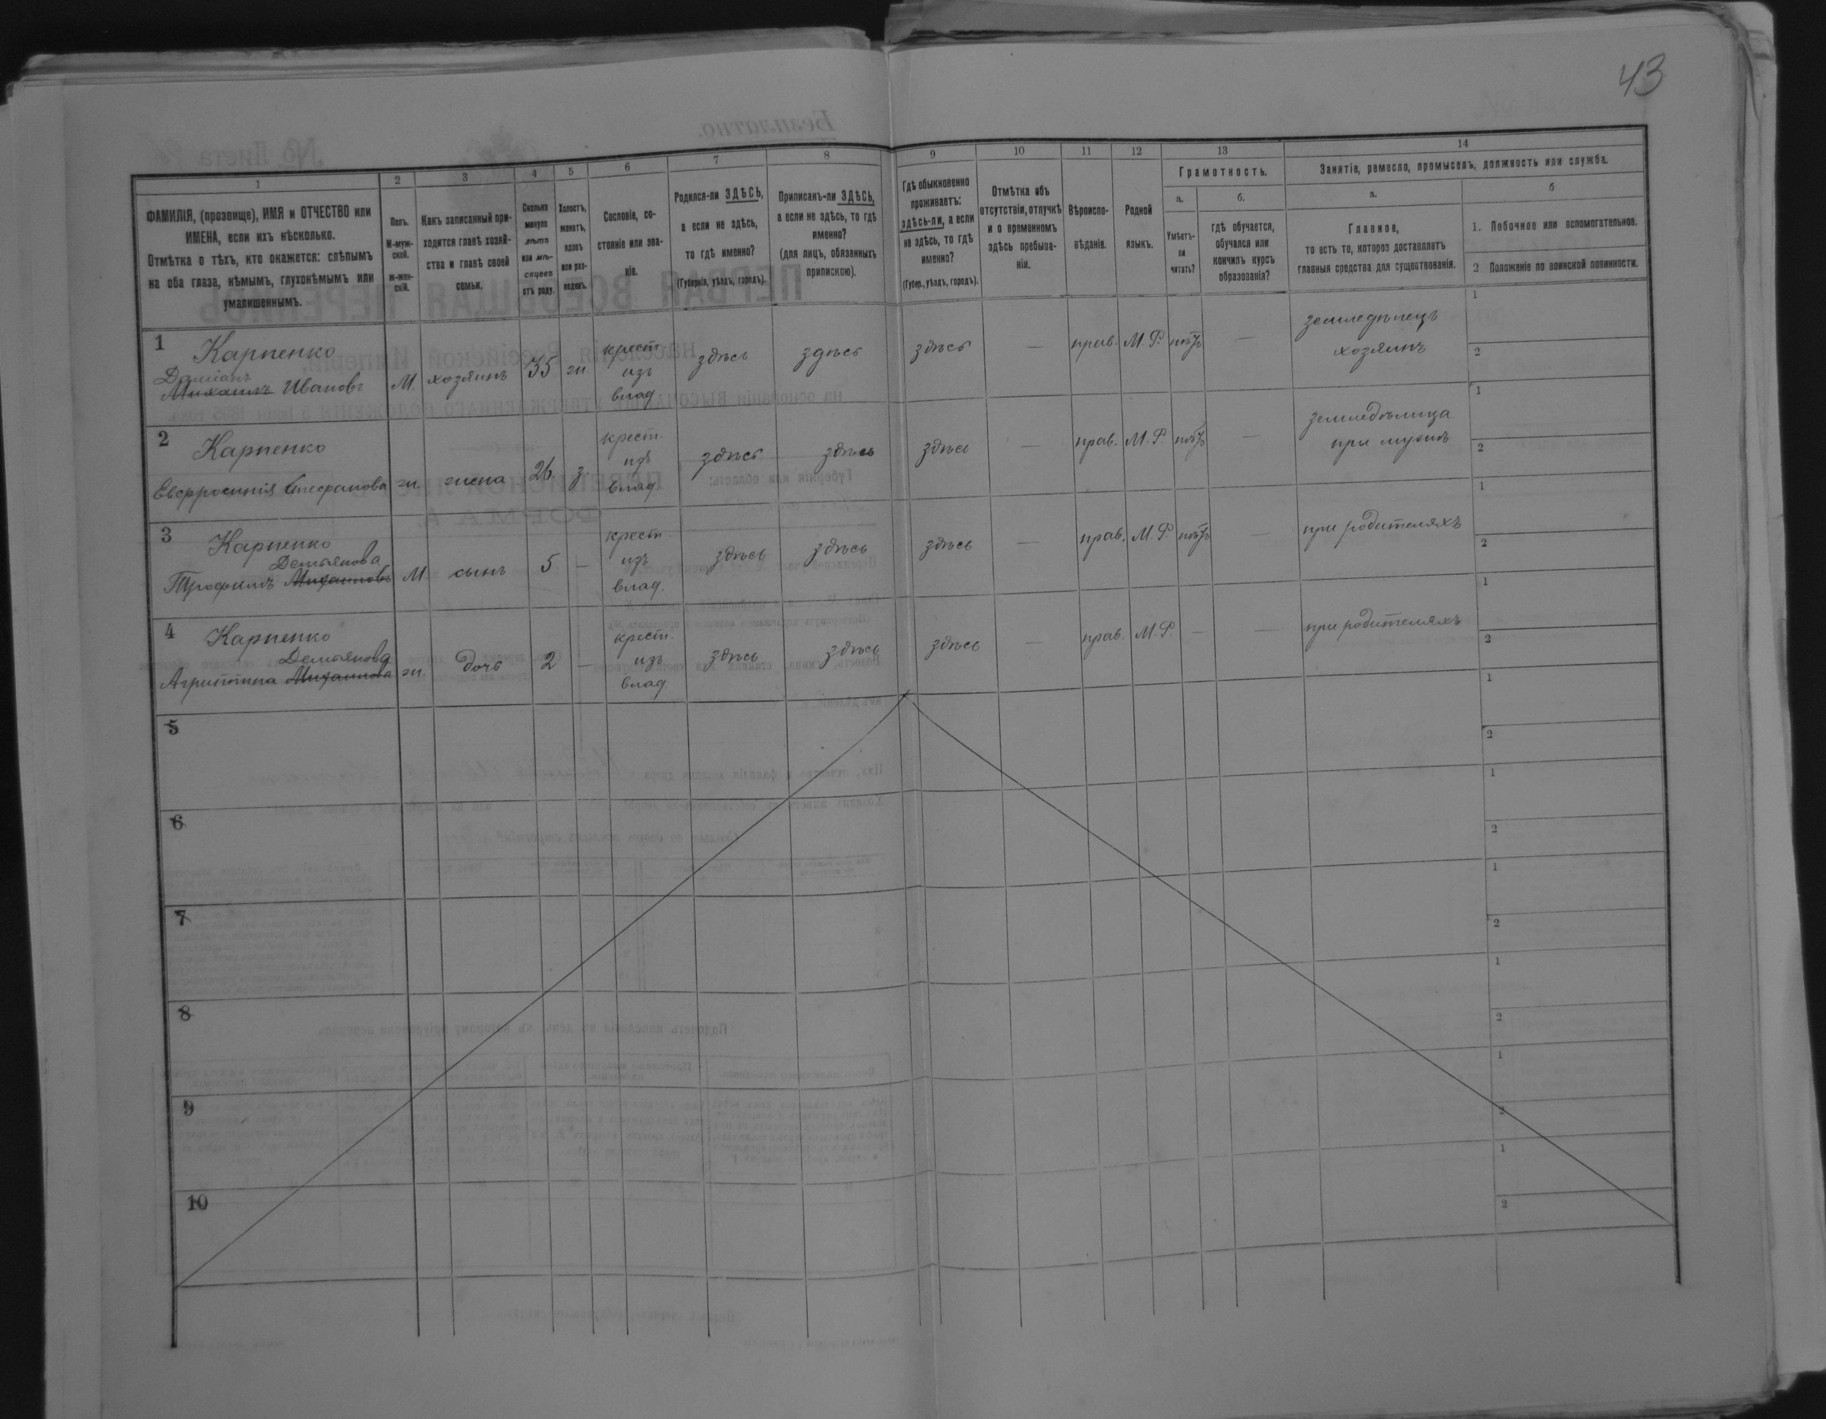 43
1 2 3 4 5 6 7 8 9 10 11 12 13 14
ФАМИЛІЯ, (прозвище), ИМЯ и ОТЧЕСТВО или
ИМЕНА, если ихъ нѣсколько.
Отмѣтка о тѣхъ, кто окажется: слѣпымъ
на оба глаза, нѣмымъ, глухонѣмымъ или
умалишеннымъ.
Полъ.
М-муж-
ской.
Ж-жен-
скій.
Какъ записанный при-
ходится главѣ хозяй-
ства и главѣ своей
семьи.
Сколько
минуло
лѣтъ
или мѣ-
сяцевъ
отъ роду.
Холостъ,
женатъ,
вдовъ
или раз-
веденъ.
Сословіе, со-
стояніе или зва-
ніе.
Родился-ли ЗДѢСЬ,
а если не здѣсь,
то гдѣ именно?
(Губернія, уѣздъ, городъ).
Приписанъ-ли ЗДѢСЬ,
а если не здѣсь, то гдѣ
именно?
(для лицъ, обязанныхъ
припискою).
Гдѣ обыкновенно
проживаетъ:
здѣсь-ли, а если
не здѣсь, то гдѣ
именно?
(Губер., уѣздъ, городъ).
Отмѣтка объ
отсутствіи, отлучкѣ
и о временномъ
здѣсь пребыва-
ніи.
Вѣроиспо-
вѣданіе.
Родной
языкъ.
Грамотность.
а.
Умѣетъ-
ли
читать?
б.
гдѣ обучается,
обучался или
кончилъ курсъ
образованія?
Занятіе, ремесло, промыселъ, должность или служба.
а.
Главное,
то есть то, которое доставляетъ
главныя средства для существованія.
б
1. Побочное или вспомогательное.
2 Положеніе по воинской повинности.
1 Карпенко
Даміанъ
Михаилъ Ивановъ М. хозяинъ 35 ж. крест. изъ влад. здѣсь здѣсь здѣсь — прав. М.Р. нѣтъ — земледѣлецъ хозяинъ 1 2
2 Карпенко
Евфросинія Стефанова ж. жена 26 з. крест. изъ влад. здѣсь здѣсь здѣсь — прав. М.Р. нѣтъ — земледѣлица при мужѣ 1 2
3 Карпенко
Демьянова
Трофимъ Михаиловъ М. сынъ 5 — крест. изъ влад. здѣсь здѣсь здѣсь — прав. М.Р. нѣтъ — при родителяхъ 1 2
4 Карпенко
Демьянова
Агриппина Михаилова ж. дочь 2 — крест. изъ влад. здѣсь здѣсь здѣсь — прав. М.Р. — — при родителяхъ 1 2
5 1 2
6 1 2
7 1 2
8 1 2
9 1 2
10 1 2